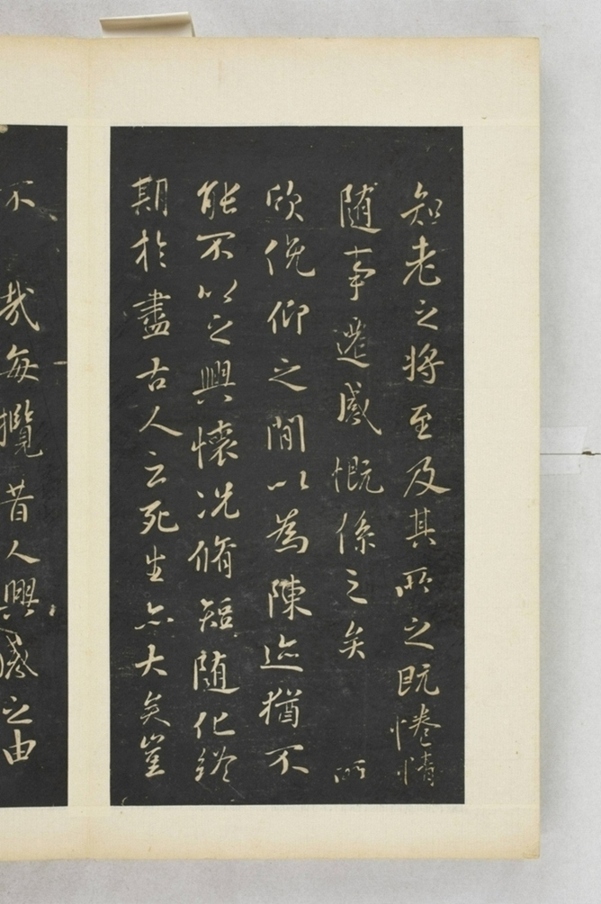 知老之将至及其所之既惓情
随事遷感慨係之矣 所
欣俛仰之間以為陳迹猶不
能不以之興懷况脩短随化終
期於盡古人云死生亦大矣豈
不 哉每攬昔人興感之由